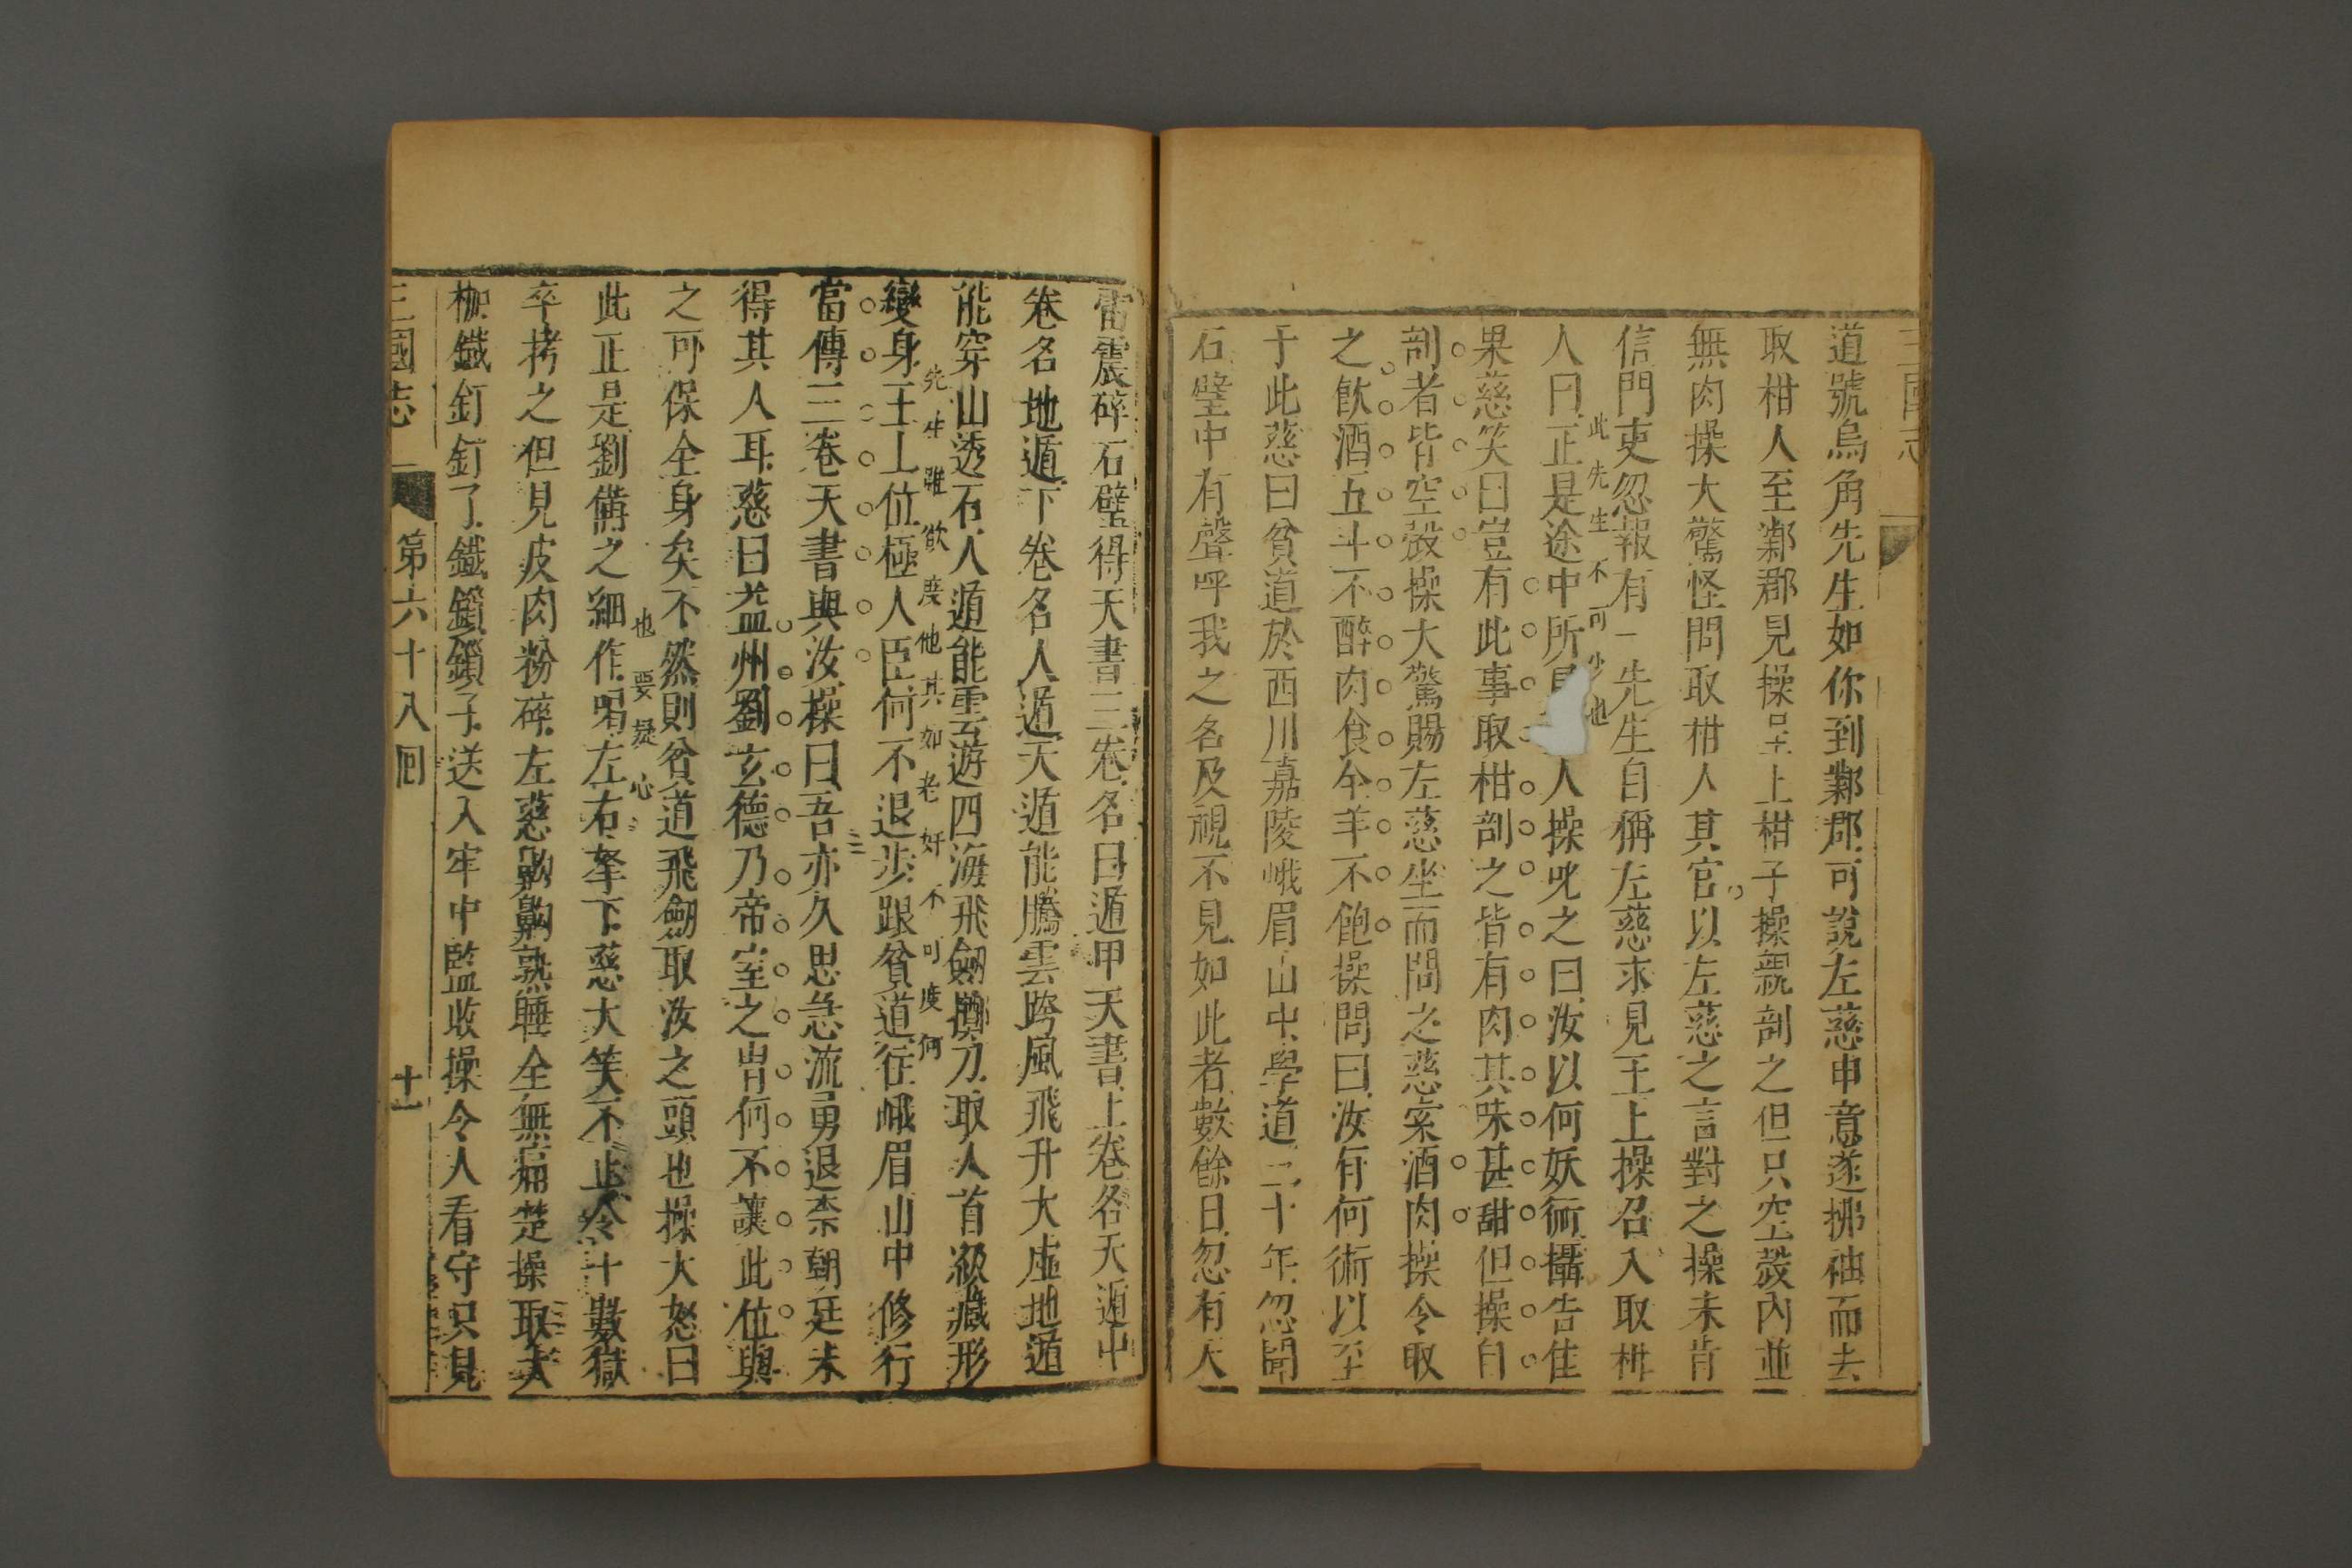 三國志
道號烏角先生如你到鄴郡可說左慈申意遂拂袖而去
取柑人至鄴郡見操呈上柑子操親剖之但只空殼內並
無肉操大驚怪問取柑人其官以左慈之言對之操未肯
信門吏忽報有一先生自稱左慈求見王上操召入取柑
此先生不可少也
人曰正是途中所見人操叱之曰汝以何妖術攝吾佳
果慈笑曰豈有此事取柑剖之皆有肉其味甚甜但操自
剖者皆空殼操大驚賜左慈坐而問之慈索酒肉操令取
之飲酒五斗不醉肉食全羊不飽操問曰汝有何術以至
于此慈曰貧道於西川嘉陵峨眉山中學道二十年忽聞
石壁中有聲呼我之名及視不見如此者數餘日忽有天
雷震碎石壁得天書三卷名曰遁甲天書上卷名天遁中
卷名地遁下卷名人遁天遁能騰雲跨風飛升大虛地遁
能穿山透石人遁能雲遊四海飛劍擲刀取人首級藏形
先生雖欲度他其如老奸不可度何
變身王上位極人臣何不退步跟貧道往峨眉山中修行
當傳三卷天書與汝操曰吾亦久思急流勇退柰朝廷未
得其人耳慈曰益州劉玄德乃帝室之冑何不讓此位與
之可保全身矣不然則貧道飛劍取汝之頭也操大怒曰
也要疑心
此正是劉備之細作喝左右拏下慈大笑不止令十數獄
卒拷之但見皮肉粉碎左慈齁齁熟睡全無痛楚操取大
枷鐵釘釘了鐵鎖鎖了送入牢中監收操令人看守只見
三國志 第六十八囘 十一